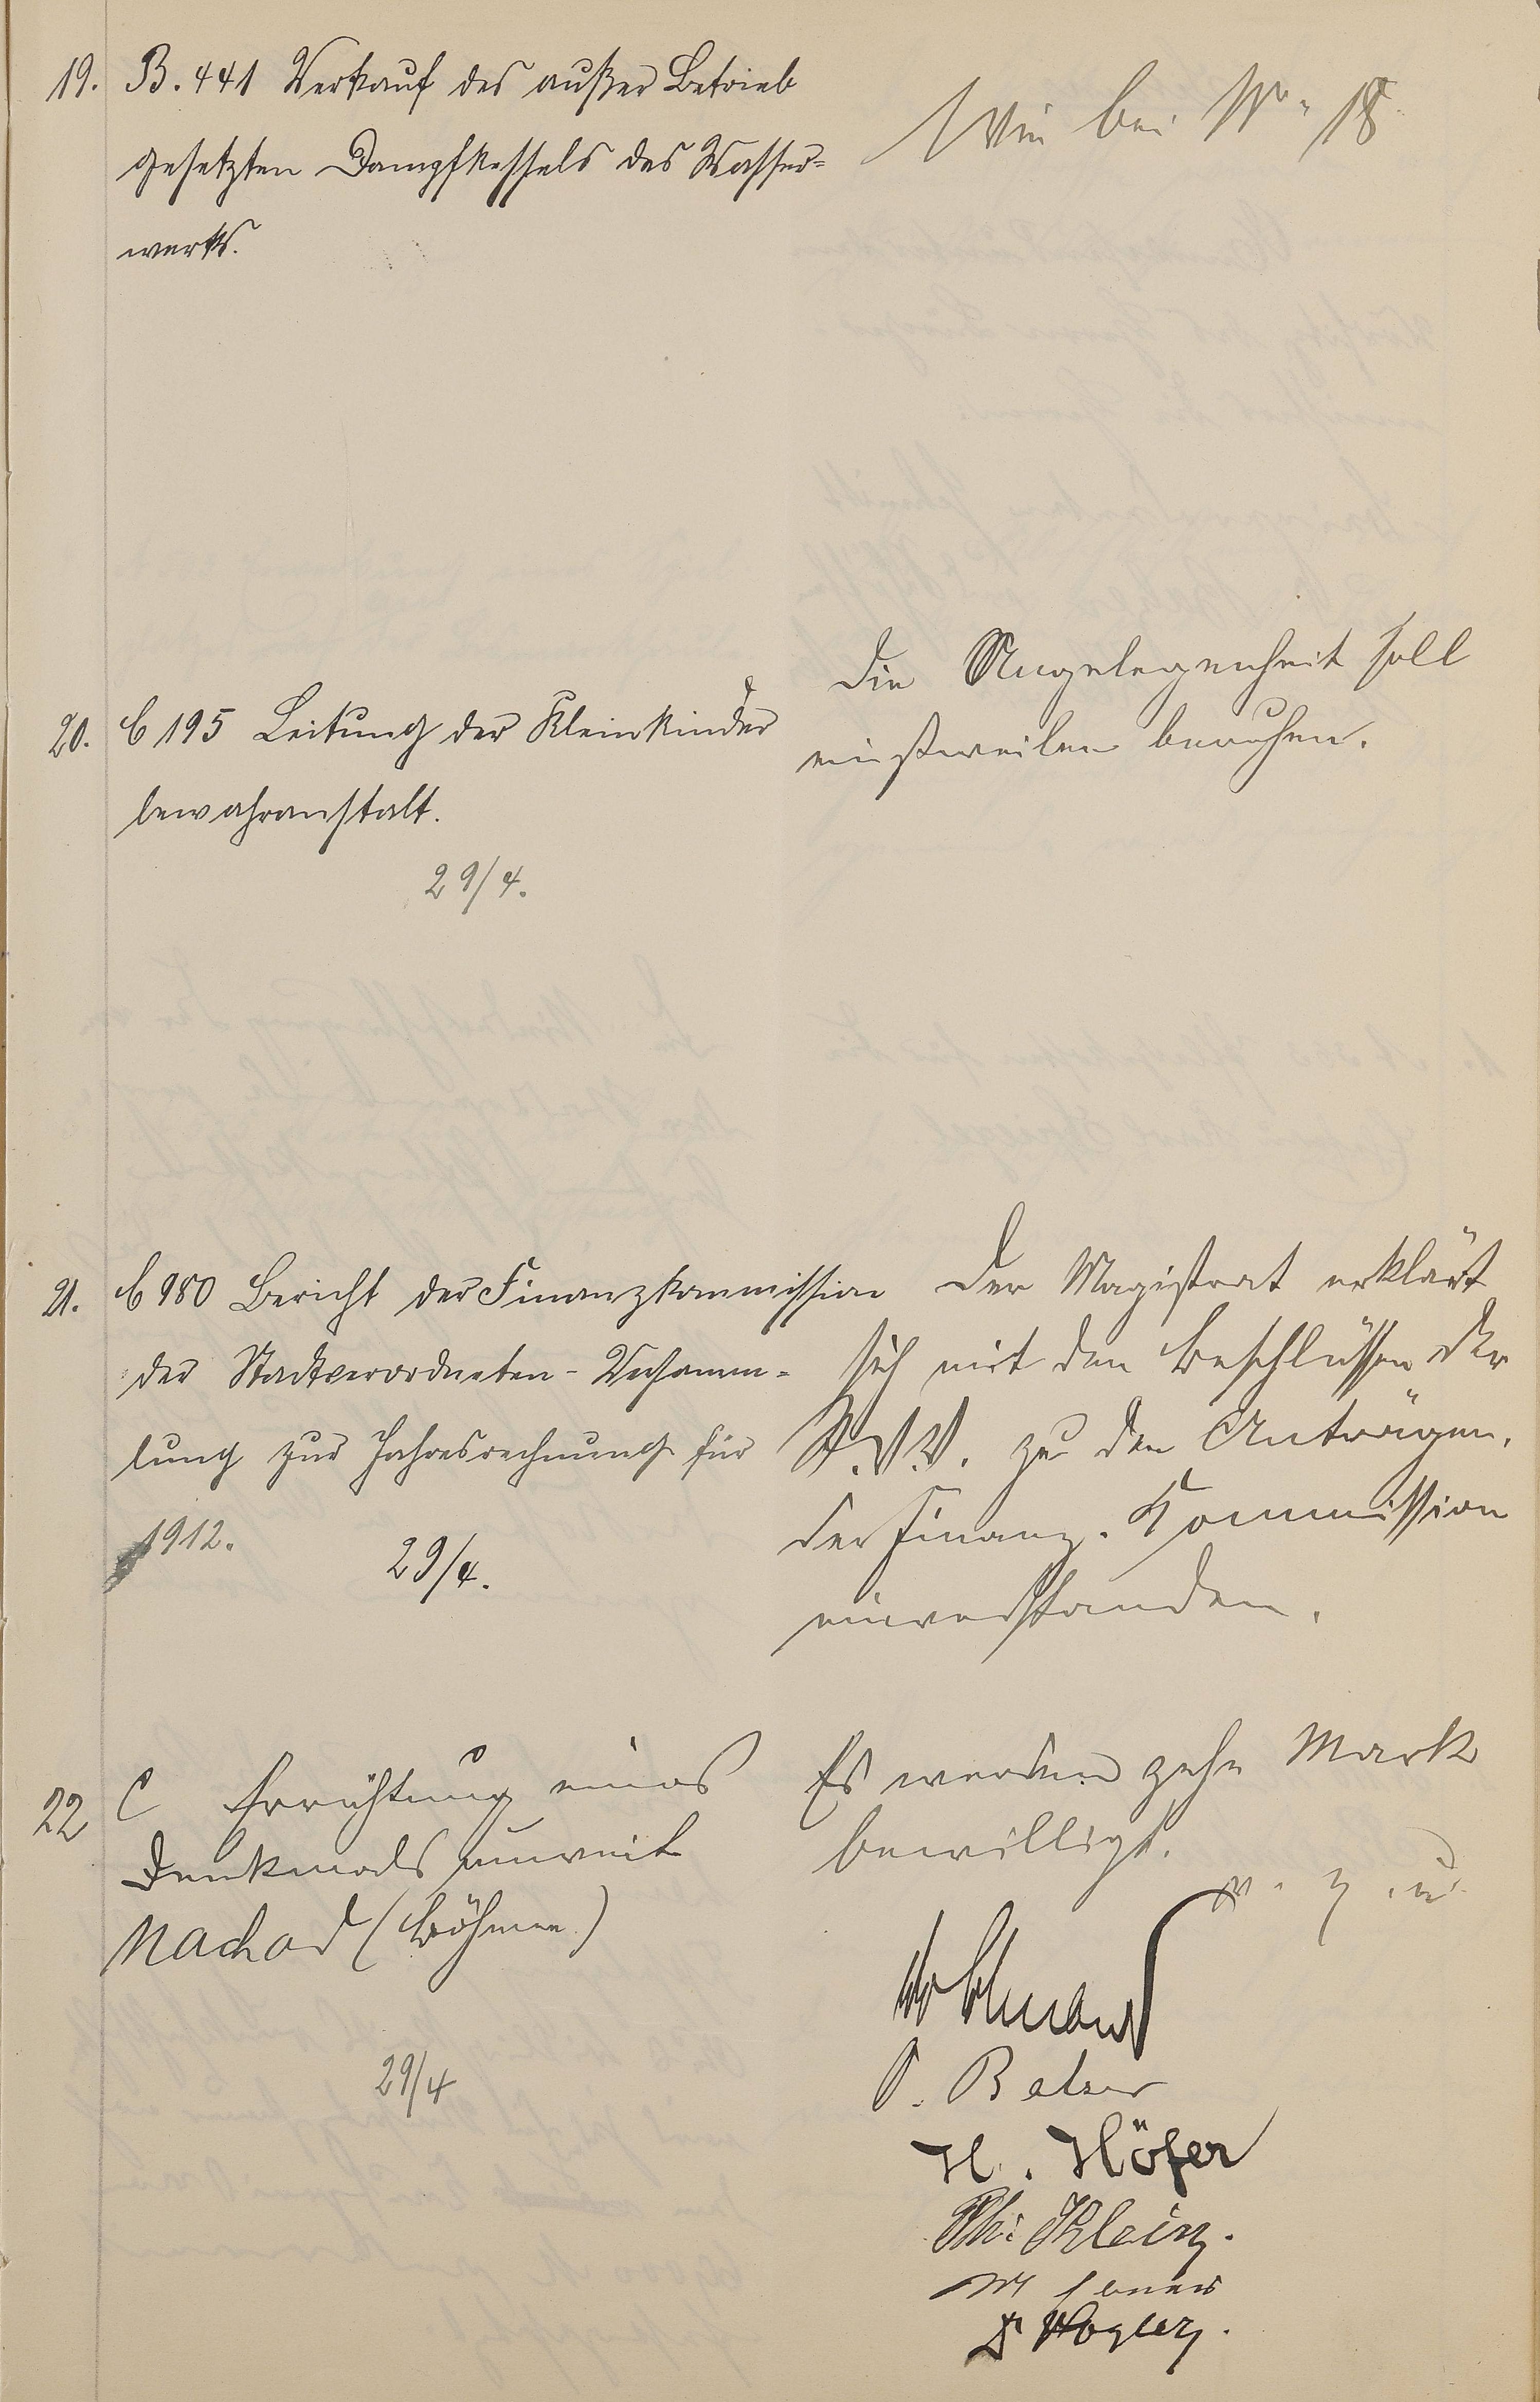 19. B. 441 Verkauf des außer Betrieb
gesetzten Dampfkessels des Wasser-
werks.
Wie bei Nr. 18
20. C 195 Leitung der Kleinkinder
bewahranstalt.
29/4.
Die Angelegenheit soll
einstweilen beruhen.
21. C 980 Bericht der Finanzkommission
der Stadtverordneten-Versamm-
lung zur Jahresrechnung für
1912.
29/4.
Der Magistrat erklärt
sich mit den Beschlüssen der
St. V. V. zu den Anträgen
der Finanz-Kommission
einverstanden.
22 C Errichtung eines
Denkmals unweit
Nachod (Böhmen)
29/4
Es werden zehn Mark
bewilligt.
v. g. u.
P. Balzer
H. Höfer
Ph. Klein.